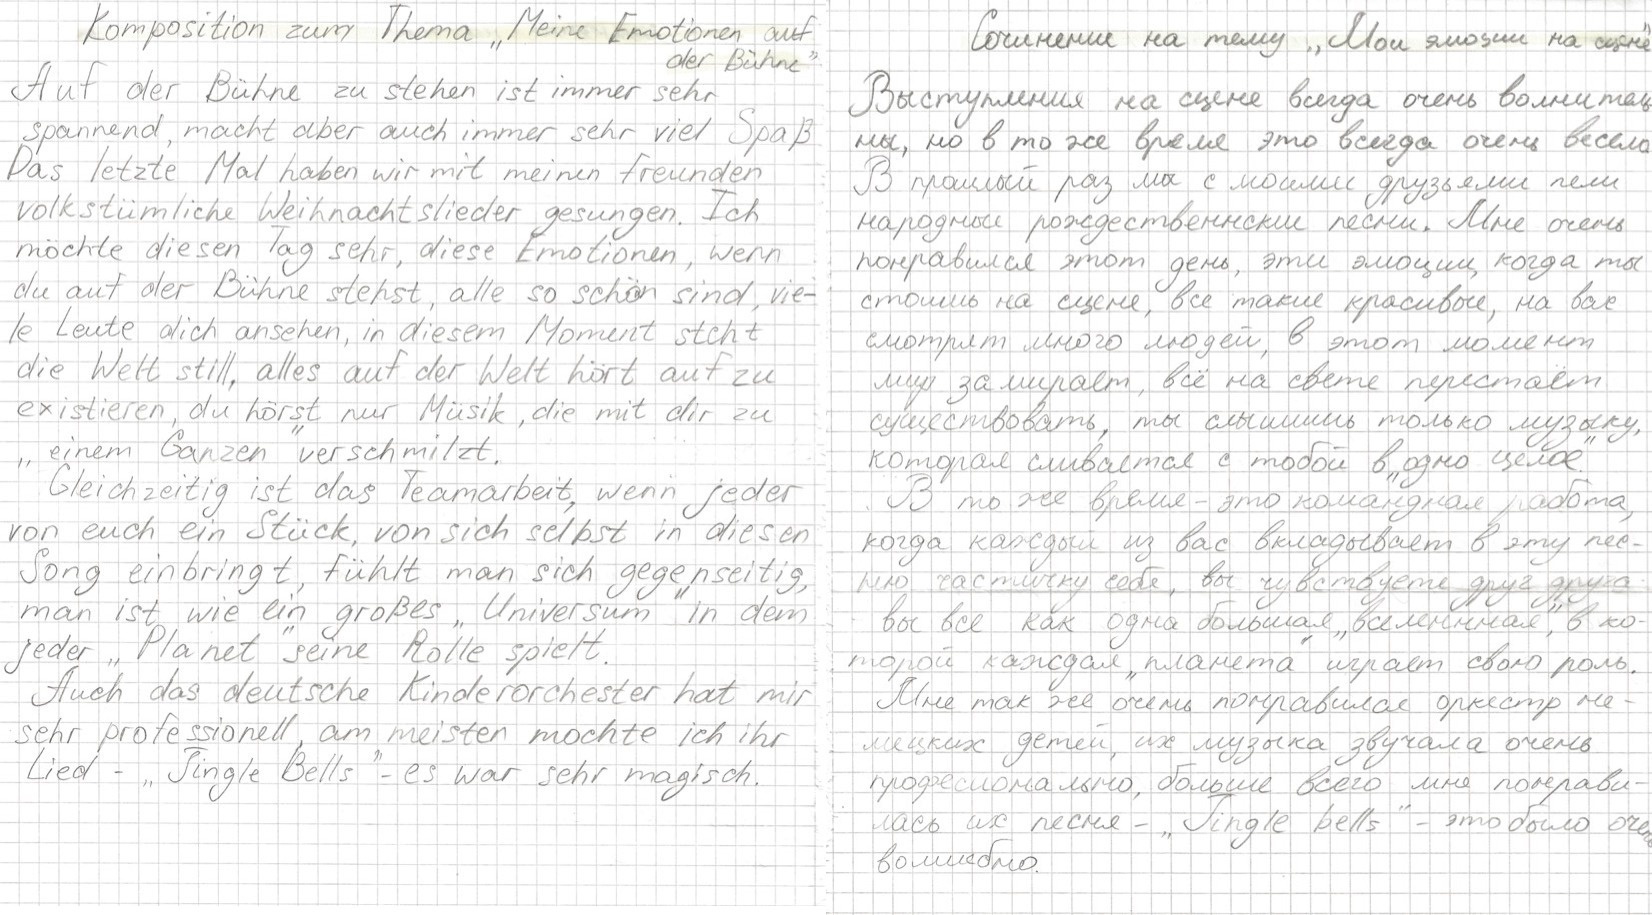 Komposition zum Thema „Meine Emotionen auf
der Bühne"
Auf der Bühne zu stehen ist immer sehr
spannend, macht aber auch immer sehr viel Spaß
Das letzte Mal haben wir mit meinen freunden
volkstümliche Weihnachtslieder gesungen. Ich
möchte diesen Tag sehr, diese Emotionen, wenn
du auf der Bühne stehst, alle so schön sind, vie-
le Leute dich ansehen, in diesem Moment steht
die Welt still, alles auf der Welt hört auf zu
existieren, du hörst nur Müsik, die mit dir zu
„einem Ganzen" verschmilzt.
Gleichzeitig ist das Teamarbeit, wenn jeder
von euch ein Stück, von sich selbst in diesen
Song einbringt, fühlt man sich gegenseitig,
man ist wie ein großes „Universum" in dem
jeder „Planet" seine Rolle spielt.
Auch das deutsche Kinderorchester hat mir
sehr professionell, am meisten mochte ich ihr
Lied - „Jingle Bells" - es war sehr magisch.
Сочинение на тему „Мои эмоции на сцене"
Выступления на сцене всегда очень волнитель
ны, но в то же время это всегда очень весело
В прошлый раз мы с моими друзьями пели
народные рождественнские песни. Мне очень
понравился этот день, эти эмоции, когда ты
стоишь на сцене, все такие красивые, на вас
смотрят много людей, в этот момент
мир замирает, всё на свете перестаёт
существовать, ты слышишь только музыку,
которая сливается с тобой в „одно целое."
В то же время - это командная работа,
когда каждый из вас вкладывает в эту пес-
ню частичку себя, вы чувствуете друг друга
вы все как одна большая „вселеннная", в ко-
торой каждая „планета" играет свою роль.
Мне так же очень понравился оркестр не-
мецких детей, их музыка звучала очень
професионально, больше всего мне понрави-
лась их песня - „Jingle bells" - это было очень
волшебно.